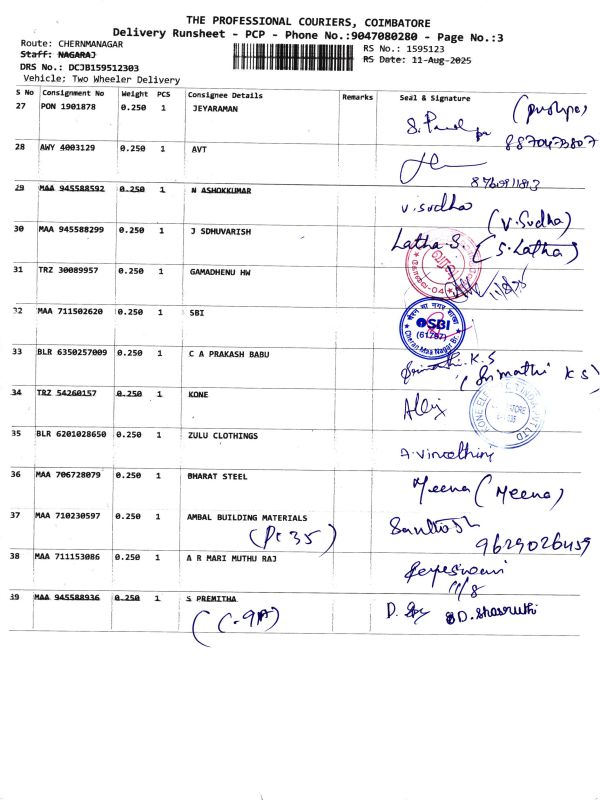 THE PROFESSIONAL COURIERS, COIMBATORE
Delivery Runsheet - PCP - Phone No.:9047080280 - Page No.:3
Route: CHERNMANAGAR RS No.: 1595123
Staff: NAGARAJ RS Date: 11-Aug-2025
DRS No.: DCJB159512303
Vehicle: Two Wheeler Delivery
S No Consignment No Weight PCS Consignee Details Remarks Seal & Signature
27 PON 1901878 0.250 1 JEYARAMAN
8870473807
28 AWY 4003129 0.250 1 AVT
29 MAA 945588592 0.250 1 N ASHOKKUMAR V.Sudha (V.Sudha)
30 MAA 945588299 0.250 1 J SDHUVARISH Latha S. (S.Latha)
31 TRZ 30089957 0.250 1 GAMADHENU HW 11/8/25
32 MAA 711502620 0.250 1 SBI
SBI
33 BLR 6350257009 0.250 1 C A PRAKASH BABU Srimathi.K.S (Srimathi K S)
34 TRZ 54260157 0.250 1 KONE
35 BLR 6201028650 0.250 1 ZULU CLOTHINGS
36 MAA 706728079 0.250 1 BHARAT STEEL Meena (Meena)
37 MAA 710230597 0.250 1 AMBAL BUILDING MATERIALS Santhosh
9629026459
38 MAA 711153086 0.250 1 A R MARI MUTHU RAJ
11/8
39 MAA 945588936 0.250 1 S PREMITHA
(C-9A)